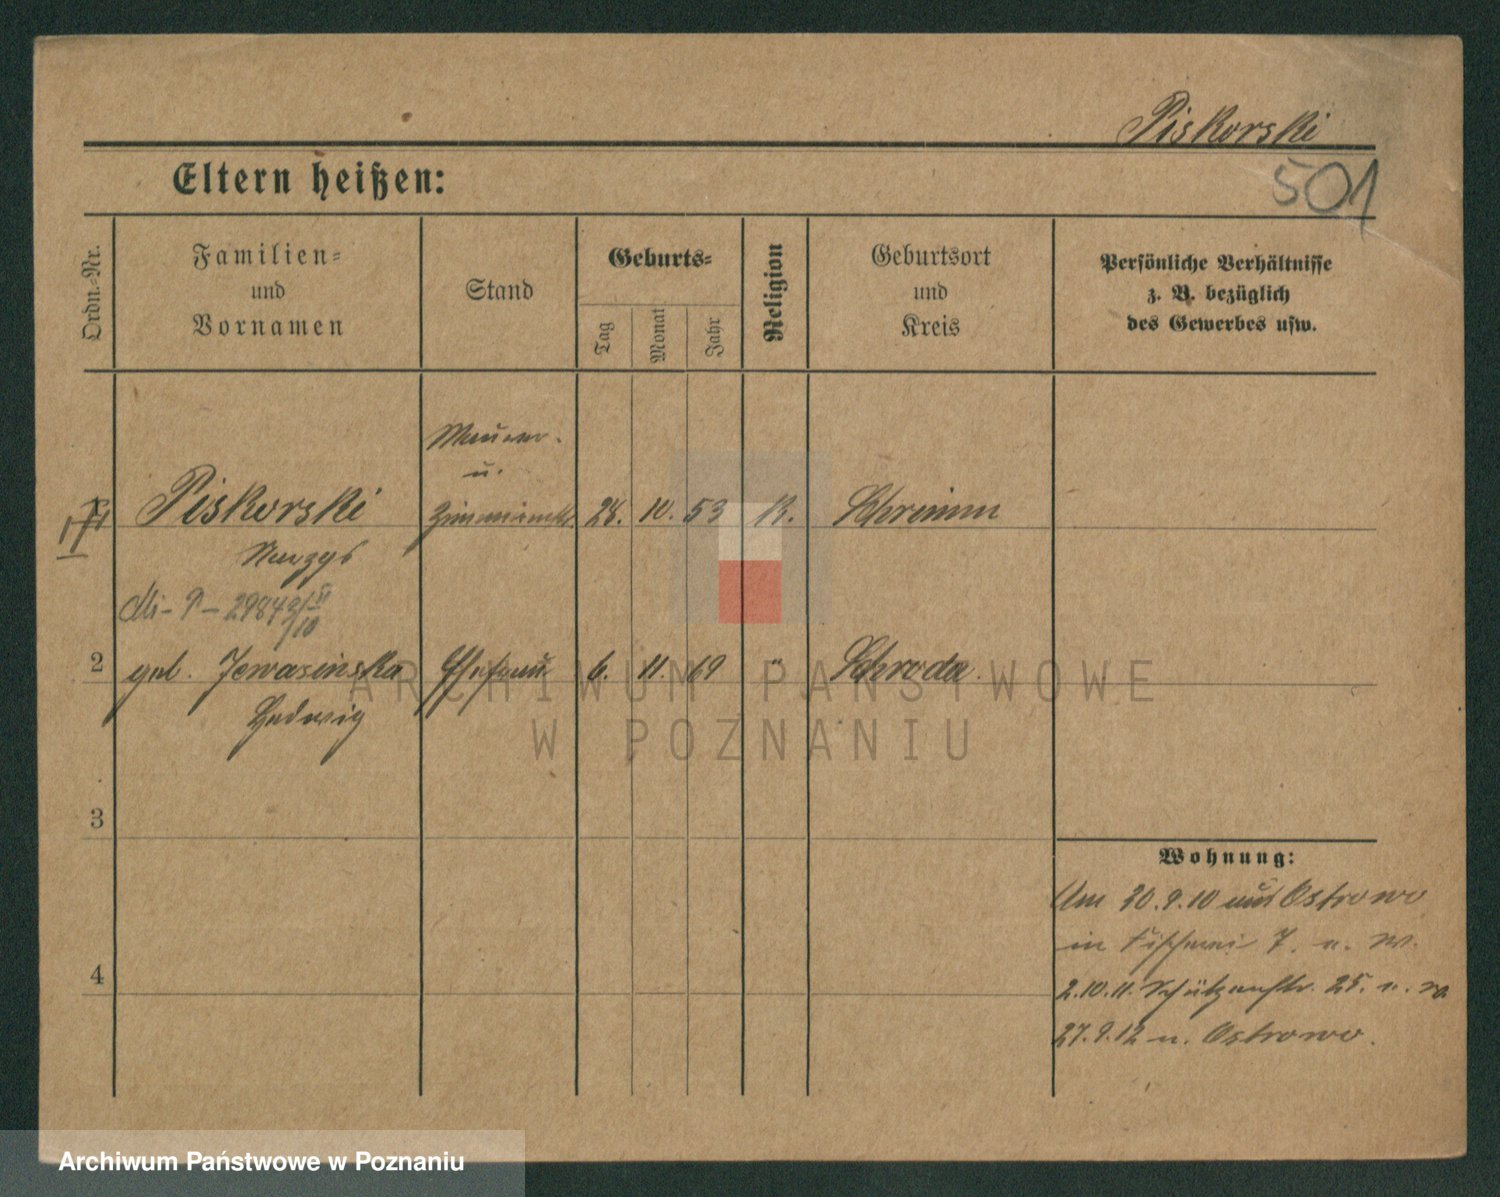 Piskorski
501
Eltern heißen:
Ordn.-Nr.
Familien-
und
Vornamen
Stand
Geburts-
Tag
Monat
Jahr
Religion
Geburtsort
und
Kreis
Persönliche Verhältnisse
z. B. bezüglich
des Gewerbes usw.
Maurer-
u.
Piskorski
28. 10. 53 K. Schrimm
2984
2 geb. Jewasinska Ehefrau 6. 11. 69 " Schroda.
Hedwig
3
Wohnung:
Am 30.9.10 aus Ostrowo
in Fischerei 7. u. W.
4
2.10.11. Schützenstr. 25. u. W.
27.9.12 n. Ostrowo.
ARCHIWUM PAŃSTWOWE
W POZNANIU
Archiwum Państwowe w Poznaniu